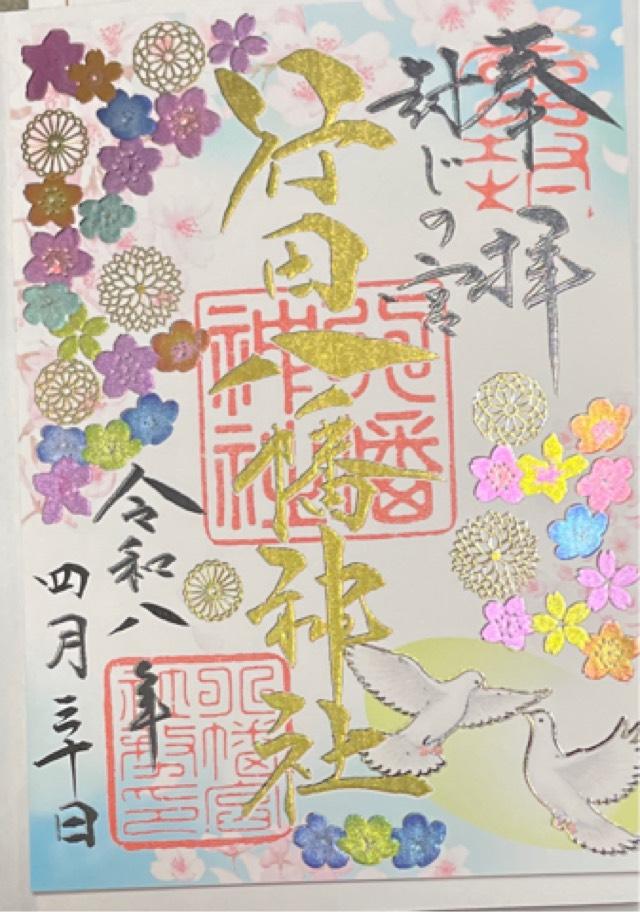 奉拝
封じの宮
行田八幡神社
八幡神社
令和八年
四月三十日